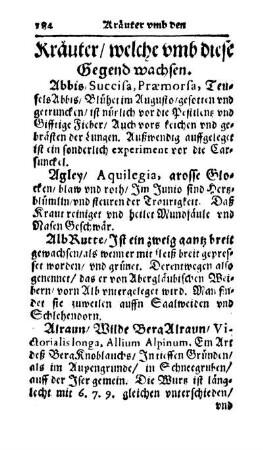 184 Kräuter vmb den
Kräuter/ welche vmb diese
Gegend wachsen.
Abbis, Succisa, Præmorsa, Teuf-
felsAbbis/ Blühet im Augusto/ gesotten vnd
getruncken/ ist nürlich vor die Pestilentz vnd
Gifftige Fieber/ Auch vors keichen vnd ge-
brästen der Lungen. Außwendig auffgeleget
ist ein sonderlich experiment vor die Car-
funckel.
Agley/ Aquilegia, grosse Glo-
cken/ blaw vnd roth/ Im Junio sind Hertz-
blümlin/ vnd steuren der Traurigkeit. Daß
Kraut reiniget vnd heilet Mundfäule vnd
Nasen Geschwär.
AlbRutte/ Ist ein zweig gantz breit
gewachsen/ als wenns mit fleiß breit gepres-
set worden/ vnd grünet. Derentwegen also
genennet/ das er von Abergläubischen Wei-
bern/ vorn Alb vntergeleget wird. Man fin-
det sie zuweilen auffn Saalweiden vnd
Schlehendorn.
Alraun/ Wilde BergAlraun/ Vi-
ctorialis longa, Allium Alpinum. Ein Art
deß BergKnoblauchs/ Jntieffen Gründen/
als im Aupengrunde/ in Schneegruben/
auff der Jser gemein. Die Wurtz ist läng-
lecht mit 6. 7. 9. gleichen vnterschieden/
vnd